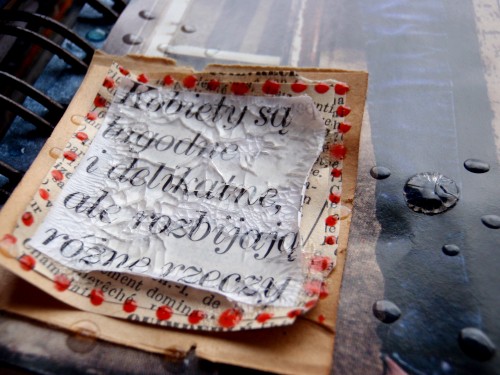 Kobiety są
łagodne
i delikatne,
ale rozbijają
różne rzeczy